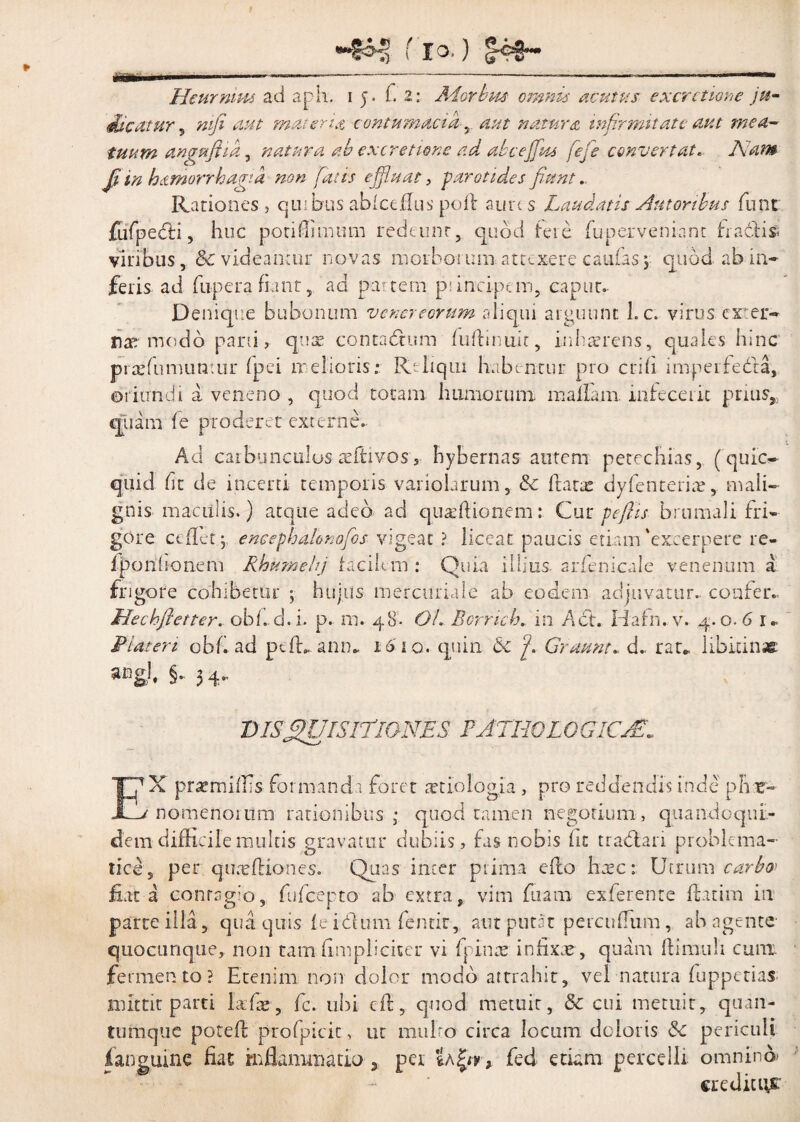 ( 10. )
Heurnius ad aph. 15. f. 2: Morbus omnis acutus excretione ju-
dicatur, nisi aut materiæ contumacia, aut naturæ infirmitate aut mea-
tuum angustiâ, natura ab excretione ad abcessus sese convertat. Nam
si in hæmorrhagiâ non satis effluat, parotides fiunt.
Rationes, quibus abscessus post aures Laudatis Autoribus sunt
suspecti, huc potissimum redeunt, quòd ferè superveniant fractis
viribus, & videantur novas morborum attexere causas; quòd ab in-
feris ad supera fiant, ad partem principem, caput.
Denique bubonum venereorum aliqui arguunt l.c. virus exter-
næ modò parti, quæ contactum sustinuit, inhærens, quales hinc
præsumuntur spei melioris: Reliqui habentur pro crisi imperfectâ,
oriundi à veneno, quod totam humorum massam infecerit priùs,
quàm se proderet externè.
Ad carbunculos æstivos, hybernas autem petechias, (quic-
quid sit de incerti temporis variolarum, & statæ dysenteriæ, mali-
gnis maculis.) atque adeò ad quæstionem: Cur pestis brumali fri-
gore cesset; encephalonosos vigeat? liceat paucis etiam excerpere re-
sponsionem Rhumelij facilem: Quia illius arsenicale venenum à
frigore cohibetur; hujus mercuriale ab eodem adjuvatur. confer.
Hechstetter. obs. d. i. p. m. 48. Ol. Borrich. in Act. Hafn. v. 4. o. 61.
Plateri obs. ad pest. ann. 1610. quin & J. Graunt. d. rat. libitinæ
angl. §. 34.
DISQUISITIONES PATHOLOGICÆ.
EX præmissis formanda foret ætiologia, pro reddendis inde phæ-
nomenorum rationibus; quod tamen negotium, quandoqui-
dem difficile multis gravatur dubiis, fas nobis sit tractari problema-
ticè, per quæstiones. Quas inter prima esto hæc: Utrum carbo
fiat à contagio, suscepto ab extra, vim suam exserente statim in
parte illâ, quâ quis se ictum sentit, aut putat percussum, ab agente
quocunque, non tam simpliciter vi spinæ infixæ, quàm stimuli cum
fermento? Etenim non dolor modò attrahit, vel natura suppetias
mittit parti læsæ, sc. ubi est, quod metuit, & cui metuit, quan-
tumque potest prospicit, ut multo circa locum doloris & periculi
sanguine fiat inflammatio, per ἕλξιν, sed etiam percelli omninò
creditur